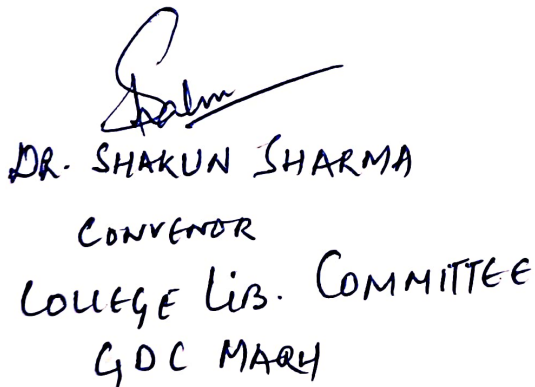 DR. SHAKUN SHARMA
CONVENOR
COLLEGE LIB. COMMITTEE
GDC MARH